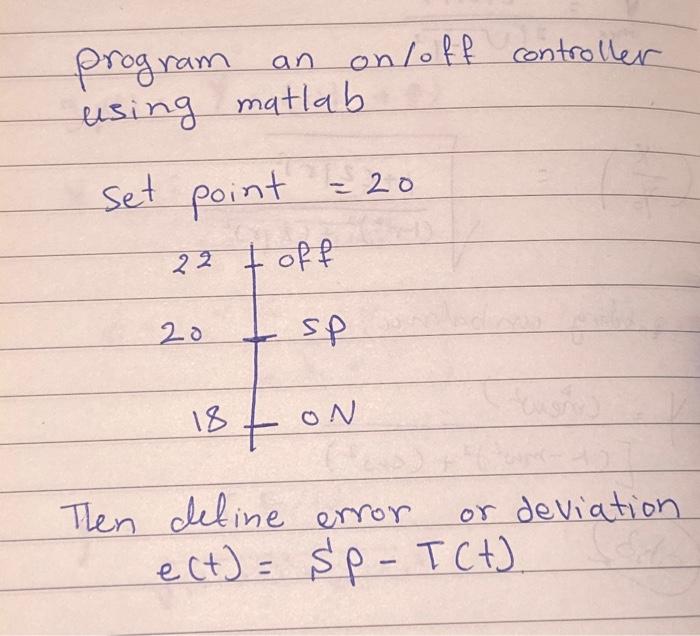 program an on/off controller
using matlab
Set point = 20
22 off
20 SP
18 ON
Then define error or deviation
e(t) = SP - T(t)